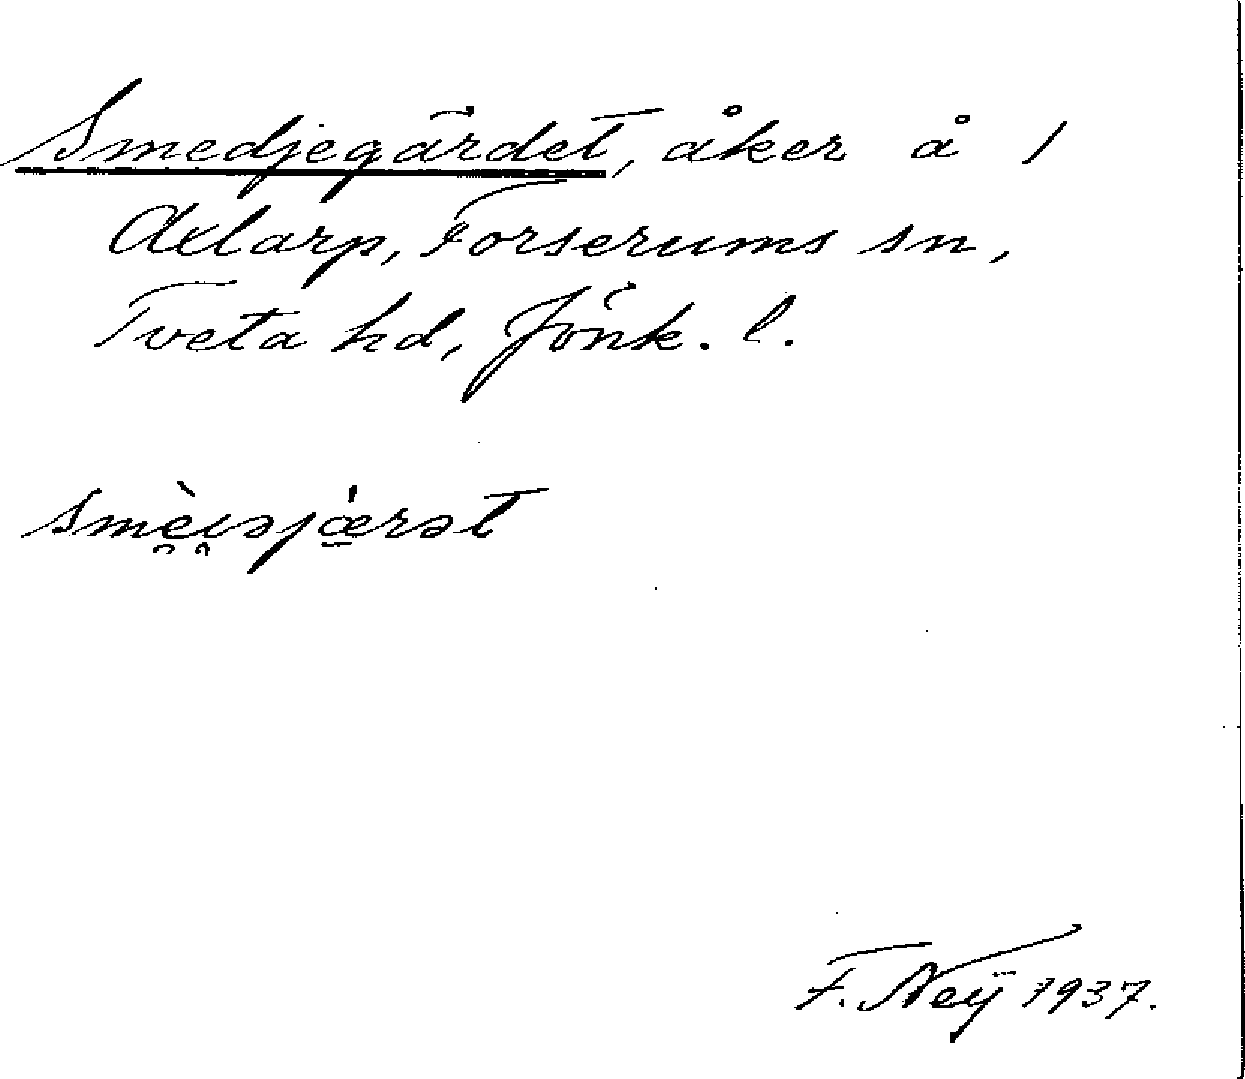 Smedjegärdet, åker å 1
Axlarp, Forserums sn,
Tveta hd, Jönk. l.
F. Neÿ 1937.